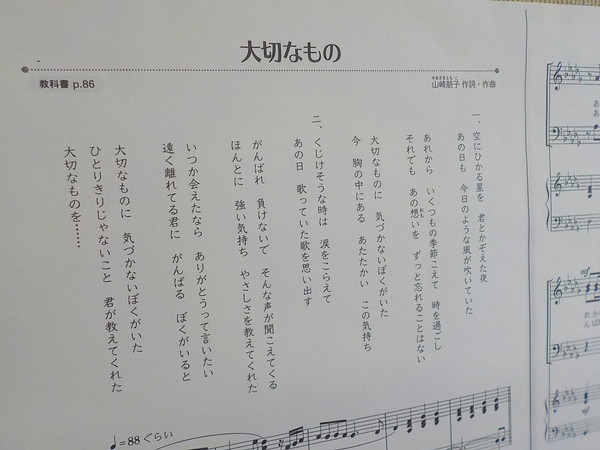 大切なもの
教科書 p.86
やまざきともこ
山崎朋子 作詞・作曲
一、空にひかる星を　君とかぞえた夜
あの日も　今日のような風が吹いていた
あれから　いくつもの季節こえて　時を過ごし
それでも　あの想いを　ずっと忘れることはない
おも
大切なものに　気づかないぼくがいた
今　胸の中にある　あたたかい　この気持ち
二、くじけそうな時は　涙をこらえて
あの日　歌っていた歌を思い出す
がんばれ　負けないで　そんな声が聞こえてくる
ほんとに　強い気持ち　やさしさを教えてくれた
いつか会えたなら　ありがとうって言いたい
遠く離れてる君に　がんばる　ぼくがいると
大切なものに　気づかないぼくがいた
ひとりきりじゃないこと　君が教えてくれた
大切なものを……
♩=88 ぐらい
mf
mf